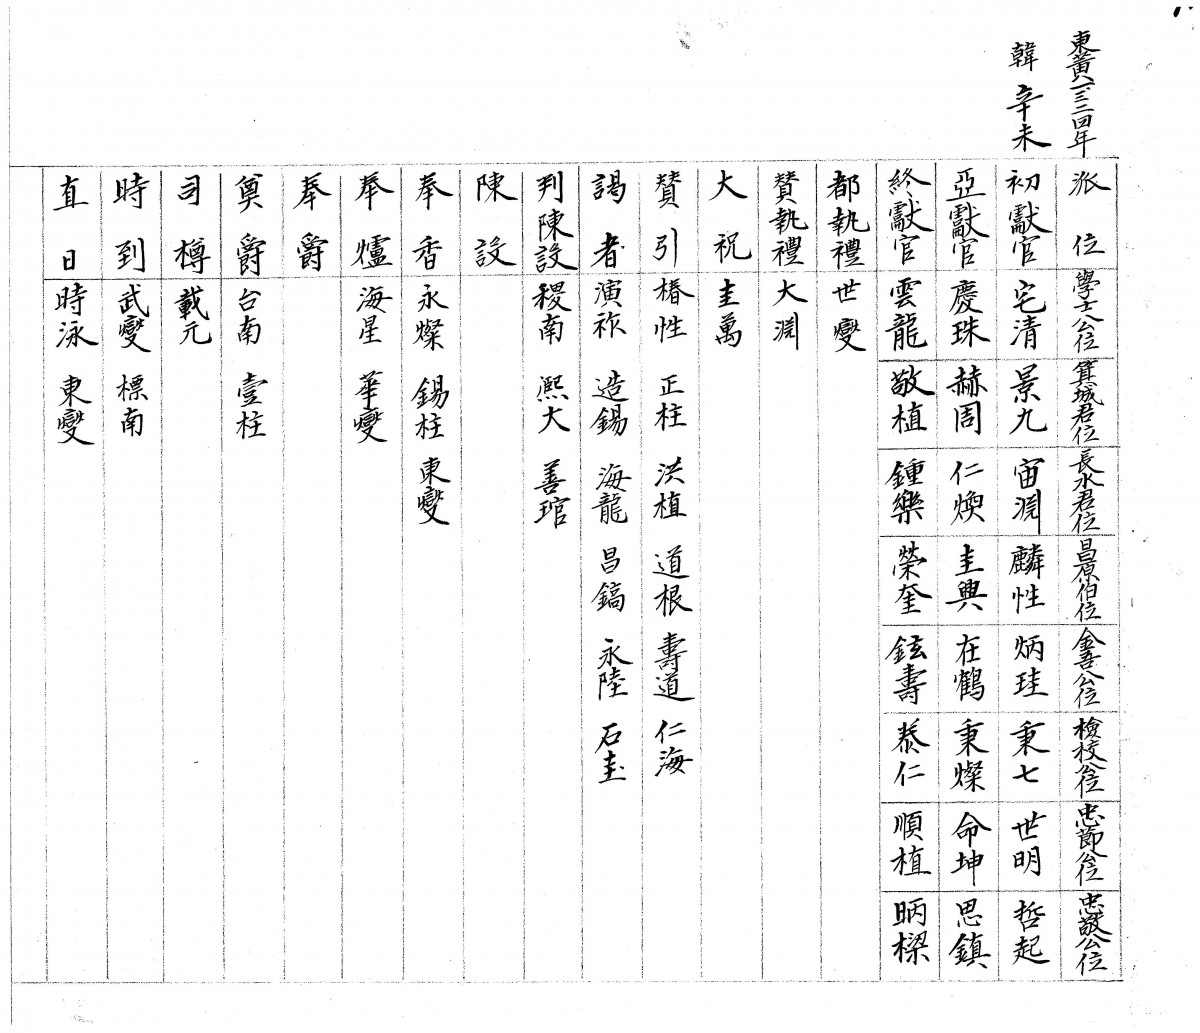 東黃八三二四年
韓 辛未
派位 學士公位 箕城君位 長水君位 昌原伯位 金吾公位 檢校公位 忠節公位 忠敬公位
初獻官 宅清 景九 宙淵 麟性 炳珪 秉七 世明 哲起
亞獻官 慶珠 赫周 仁煥 圭興 在鶴 秉燦 命坤 思鎮
終獻官 雲龍 敬植 鍾樂 榮奎 鉉壽 泰仁 順植 昞樑
都執禮 世燮
贊執禮 大淵
大祝 圭萬
贊引 椿性 正柱 洪植 道根 壽道 仁海
謁者 演祚 造錫 海龍 昌鎬 永陸 石圭
判陳設 稷南 熙大 善琯
陳設
奉香 永燦 錫柱 東燮
奉爐 海星 華燮
奉爵
奠爵 台南 壹柱
司樽 載元
時到 武燮 標南
直日 時泳 東燮